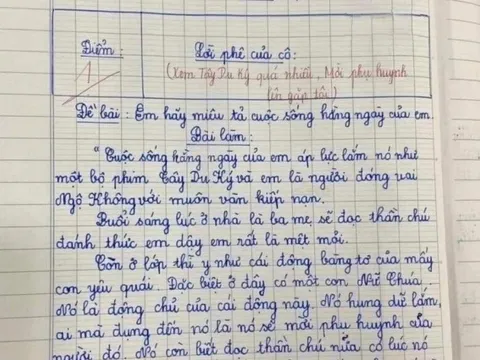 Điểm: Lời phê của cô:
1 (Xem Tây Du Ký quá nhiều. Mời phụ huynh
lên gặp tôi)
Đề bài: Em hãy miêu tả cuộc sống hằng ngày của em.
Bài làm:
"Cuộc sống hằng ngày của em áp lực lắm nó như
một bộ phim Tây Du Ký và em là người đóng vai
Ngộ Không với muôn vàn kiếp nạn.
Buổi sáng lúc ở nhà là ba mẹ sẽ đọc thần chú
đánh thức em dậy em rất là mệt mỏi.
Còn ở lớp thì y như cái động bàng tơ của mấy
con yêu quái. Đặc biệt ở đây có một con Nữ Chúa
Nó là động chủ của cái động này. Nó hung dữ lắm,
ai mà đụng đến nó là nó sẽ mời phụ huynh của
người đó. Nó còn biết đọc thần chú nữa cơ lúc nó